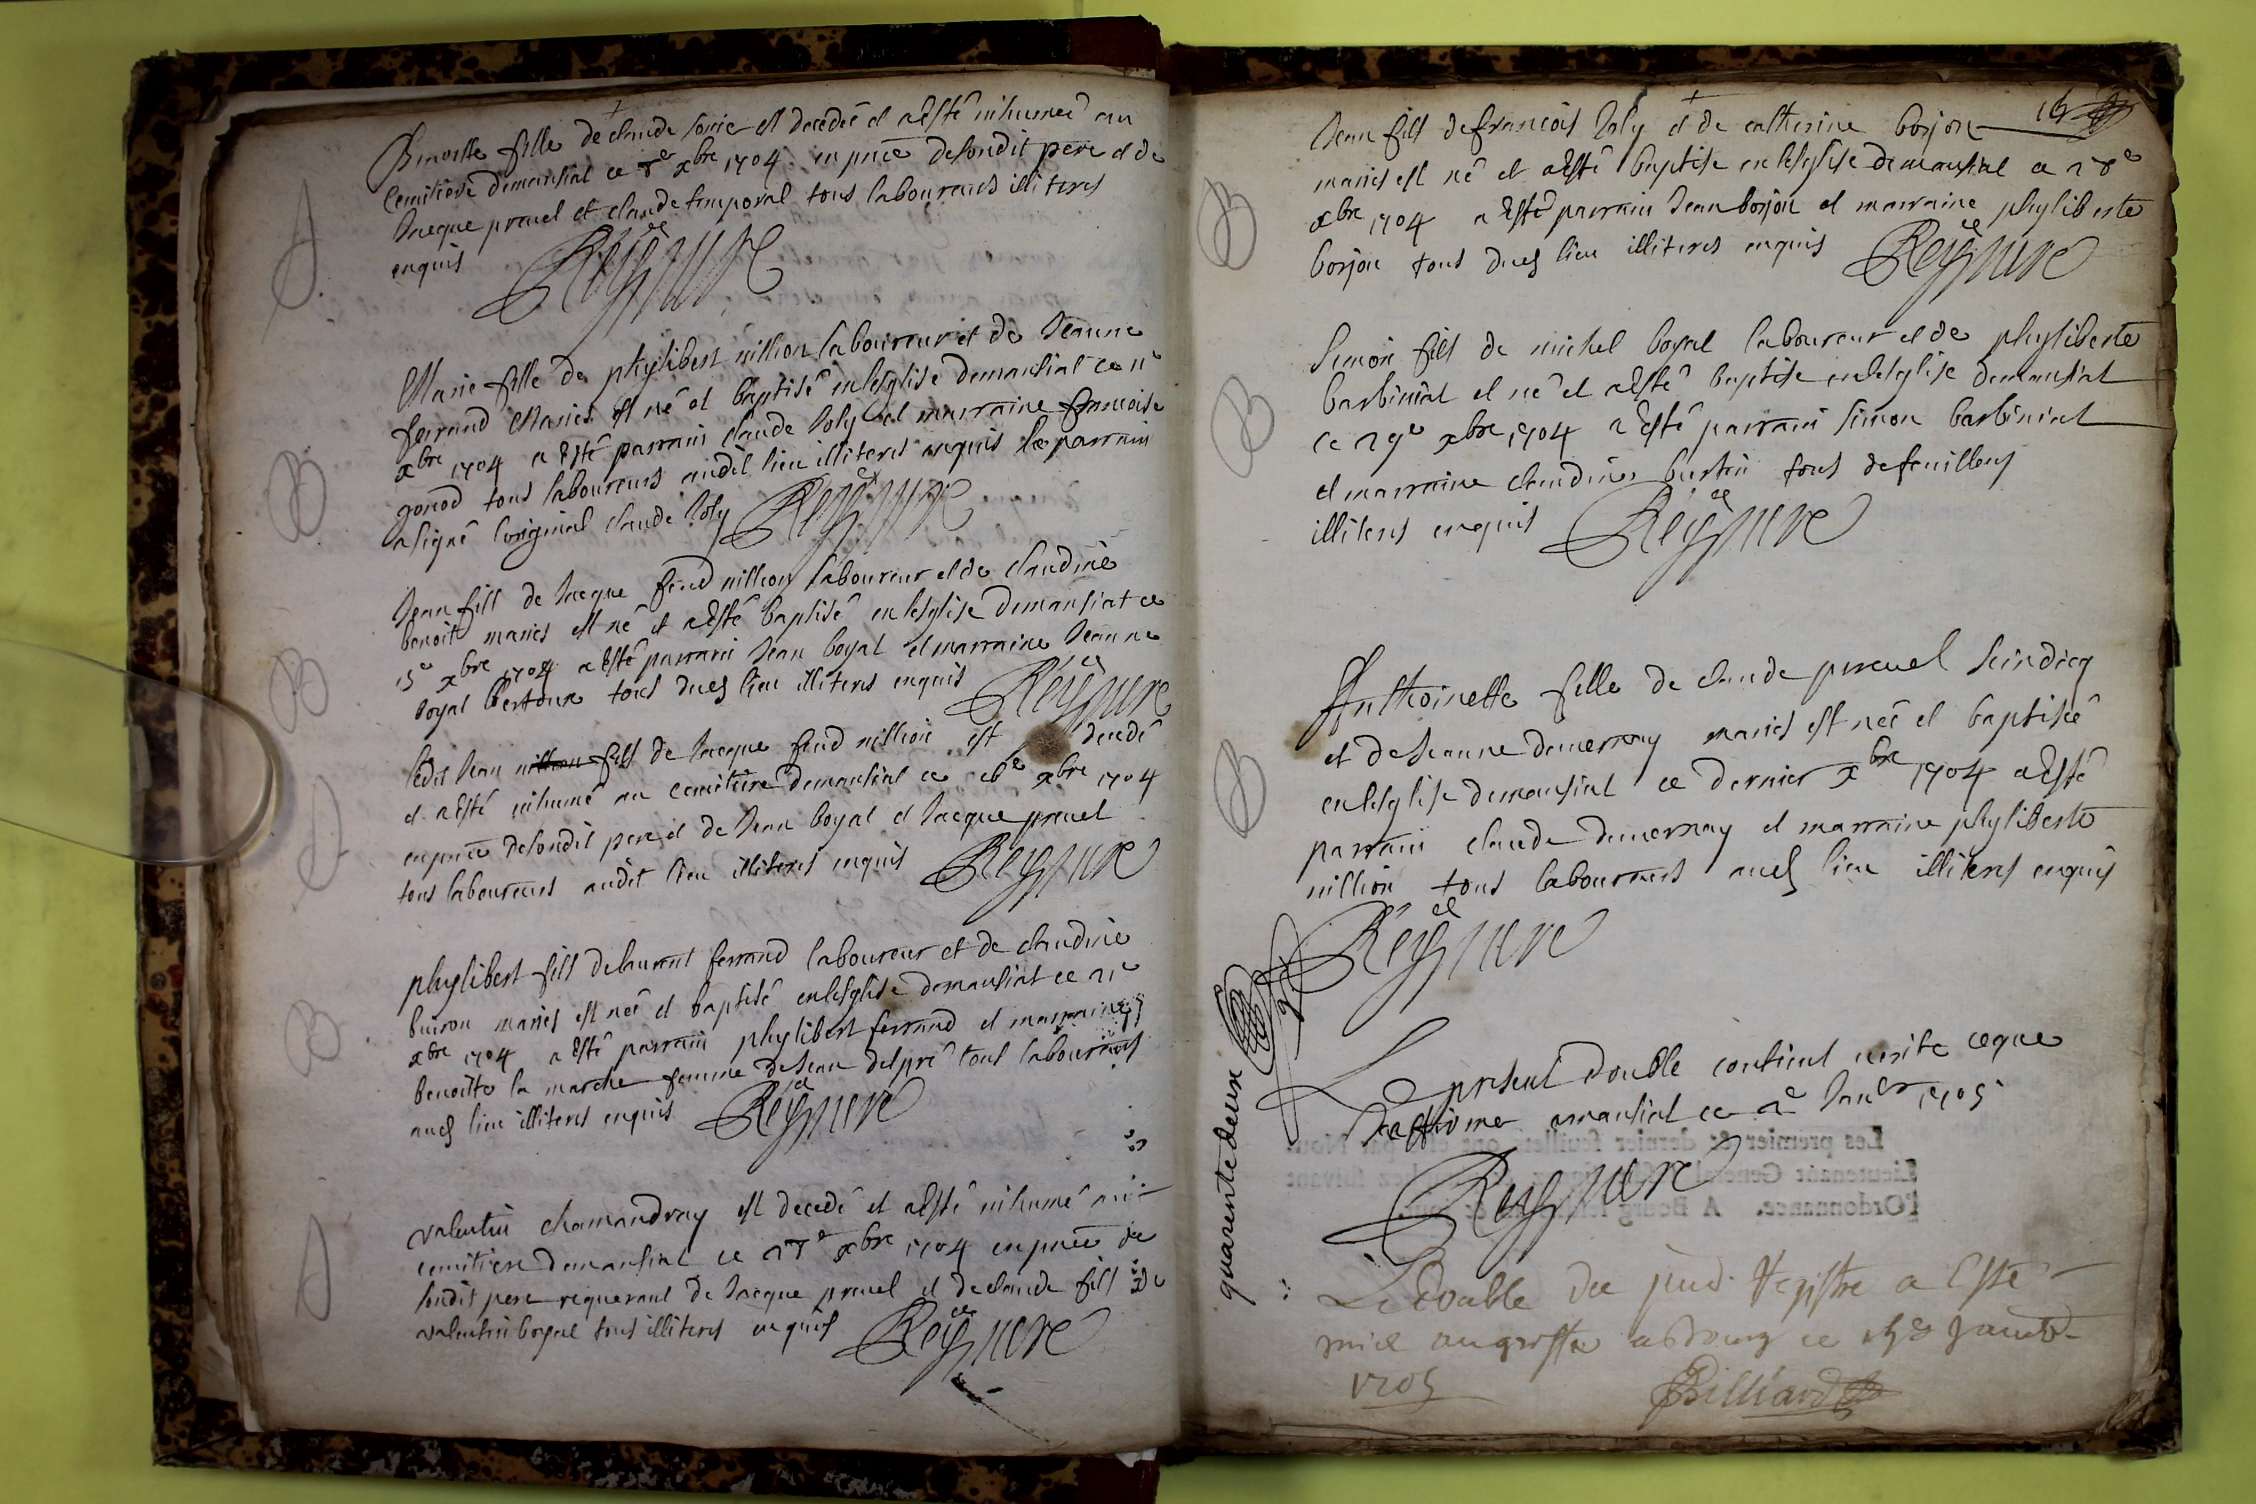 Benoitte fille de claude sorie est decedée et a Esté inhumée au
Cemitiere demansiat ce 8e xbre 1704 en pnce desondit pere et de
Jacque preuel et claude temporal tous laboureurs illiteres
enquis Reyssure cé
D
Marie fille de phylibert nillion laboureur et de Jeanne
ferrand Maries est né et baptisé en lesglise demansiat ce 11e
xbre 1704 a Esté parrain claude Joly et marraine francoise
gonod tous laboureurs audit lieu illiteres enquis le parrain
a signé loriginal claude Joly Reyssure cé
B
Jean fils de Jacque feud nillion laboureur et de claudine
benoit maries est né et a Esté baptisé en lesglise demansiat ce
15e xbre 1704 a Esté parrain Jean boyat et marraine Jeanne
boyat tous dud lieu illiteres enquis Reyssure cé
B
ledit Jean nillion fils de Jacque feud nillion est decedé
et a Esté inhumé au cemitiere demansiat ce xbre 1704
en pnce desondit pere et de Jean boyat et Jacque preuel
tous laboureurs audit lieu illiteres enquis Reyssure
D
phylibert fils delaurant ferrand laboureur et de claudine
buiron maries est neé et baptisé en lesglise demansiat ce 21e
xbre 1704 a Esté parrain phylibert ferrand et marraine
benoitte la marche femme de Jean despré tous laboureurs
aud lieu illiteres enquis Reyssure cé
B
valentin chamandray est decedé et a Esté inhumé au
cemitiere demansiat ce 27e xbre 1704 en pnce de
sondit pere requerant de Jacque preuel et de claude fils de
valentin boyat tous illiteres enquis Reyssure cé
D
16
Jean fils defrancois Joly et de catherine borjon
maries est né et a Esté baptise en lesglise demansiat ce 28e
xbre 1704 a Esté parrain Jean borjon et marraine phyliberte
borjon tous dud lieu illiteres enquis Reyssure cé
B
Simon fils de michel boyat laboureur et de phyliberte
barbiniat et né et a Esté baptise en lesglise demansiat
ce 29e xbre 1704 a Esté parrain simon barbiniat
et marraine claudine burtin tous defeuillens
illiteres enquis Reyssure cé
B
Anthoinette fille de claude preuel scindicq
et de Jeanne demernay maries est neé et baptisée
en lesglise demansiat ce dernier xbre 1704 a Esté
parrain claude demernay et marraine phyliberte
nillion tous laboureurs aud lieu illiteres enquis
Reyssure cé
B
quarentedeux
Le present double contient verite ceque
Jeaffirme amansiat ce 2e Janer 1705
Reyssure
Le double du pnt Registre a Esté
mis au greffe a Bourg ce Janvr
1705 Billiard